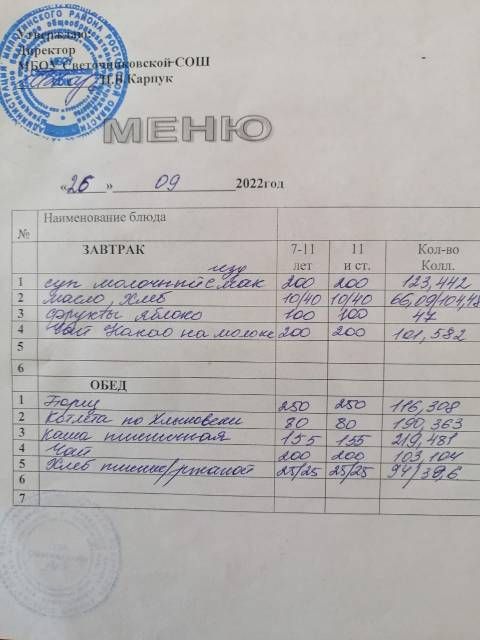 Утверждаю:
Директор
МБОУ Светочниковской СОШ
Н.В.Карпук
МЕНЮ
«26» 09 2022год
№ Наименование блюда
ЗАВТРАК 7-11 лет 11 и ст. Кол-во Колл.
1 суп молочный с мак изд 200 200 123,442
2 масло, хлеб 10/40 10/40 66,09/104,48
3 фрукты яблоко 100 100 47
4 Какао на молоке 200 200 101,582
5
6
ОБЕД
1 Борщ 250 250 116,308
2 Котлета по 80 80 190,363
3 каша пшеничная 155 155 219,481
4 Чай 200 200 103,104
5 Хлеб пшенич/ржаной 25/25 25/25 94/39,6
6
7